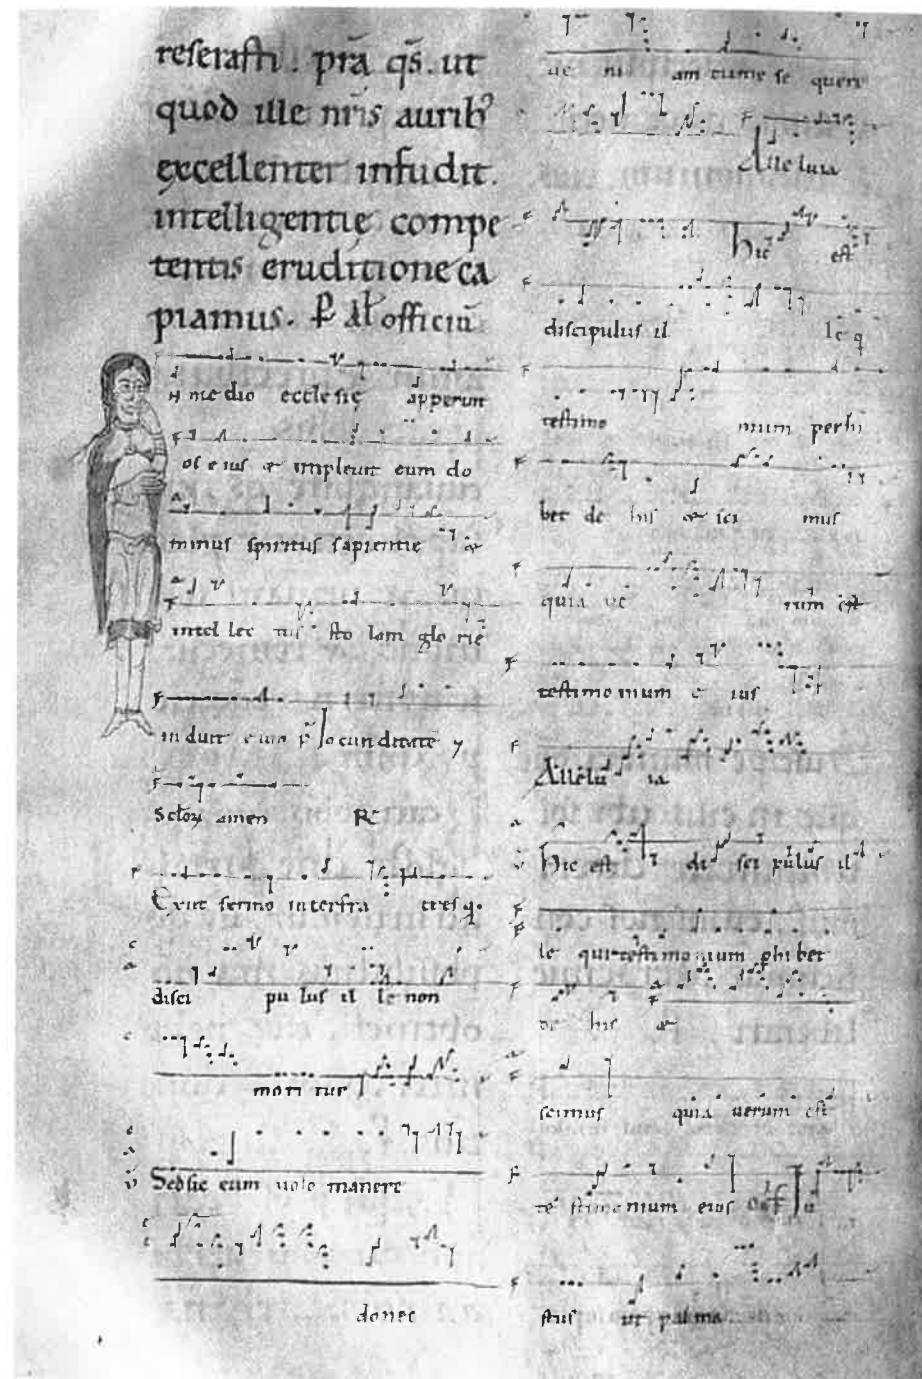 reserasti. prā qs̄. ut
quod ille nr̄is aurib᾽
excellenter infudit.
intelligentię compe
tentis eruditione ca
piamus. P Al officiū
N medio ecclesię apperuit
os eius & impleuit eum do
minus spiritus sapientie &
intel lec tus sto lam glo rię
induit eum p̄ Iocunditatē
sclorum amen R
Exiit sermo inter fra tres q.
disci pu lus il le non
mori tur
V Sed sic eum uolo manere
donec
ue ni am tu me se quere
Alleluia
hic est
discipulus il le q
testimo nium perhi
bet de his & sci mus
quia ue rum est
testimo nium e ius
Allelu ia
V Hic est di sci pulus il
le qui testimonium phibet
de his &
scimus quia uerum est
te stimo nium eius Off Iu
stus ut palma